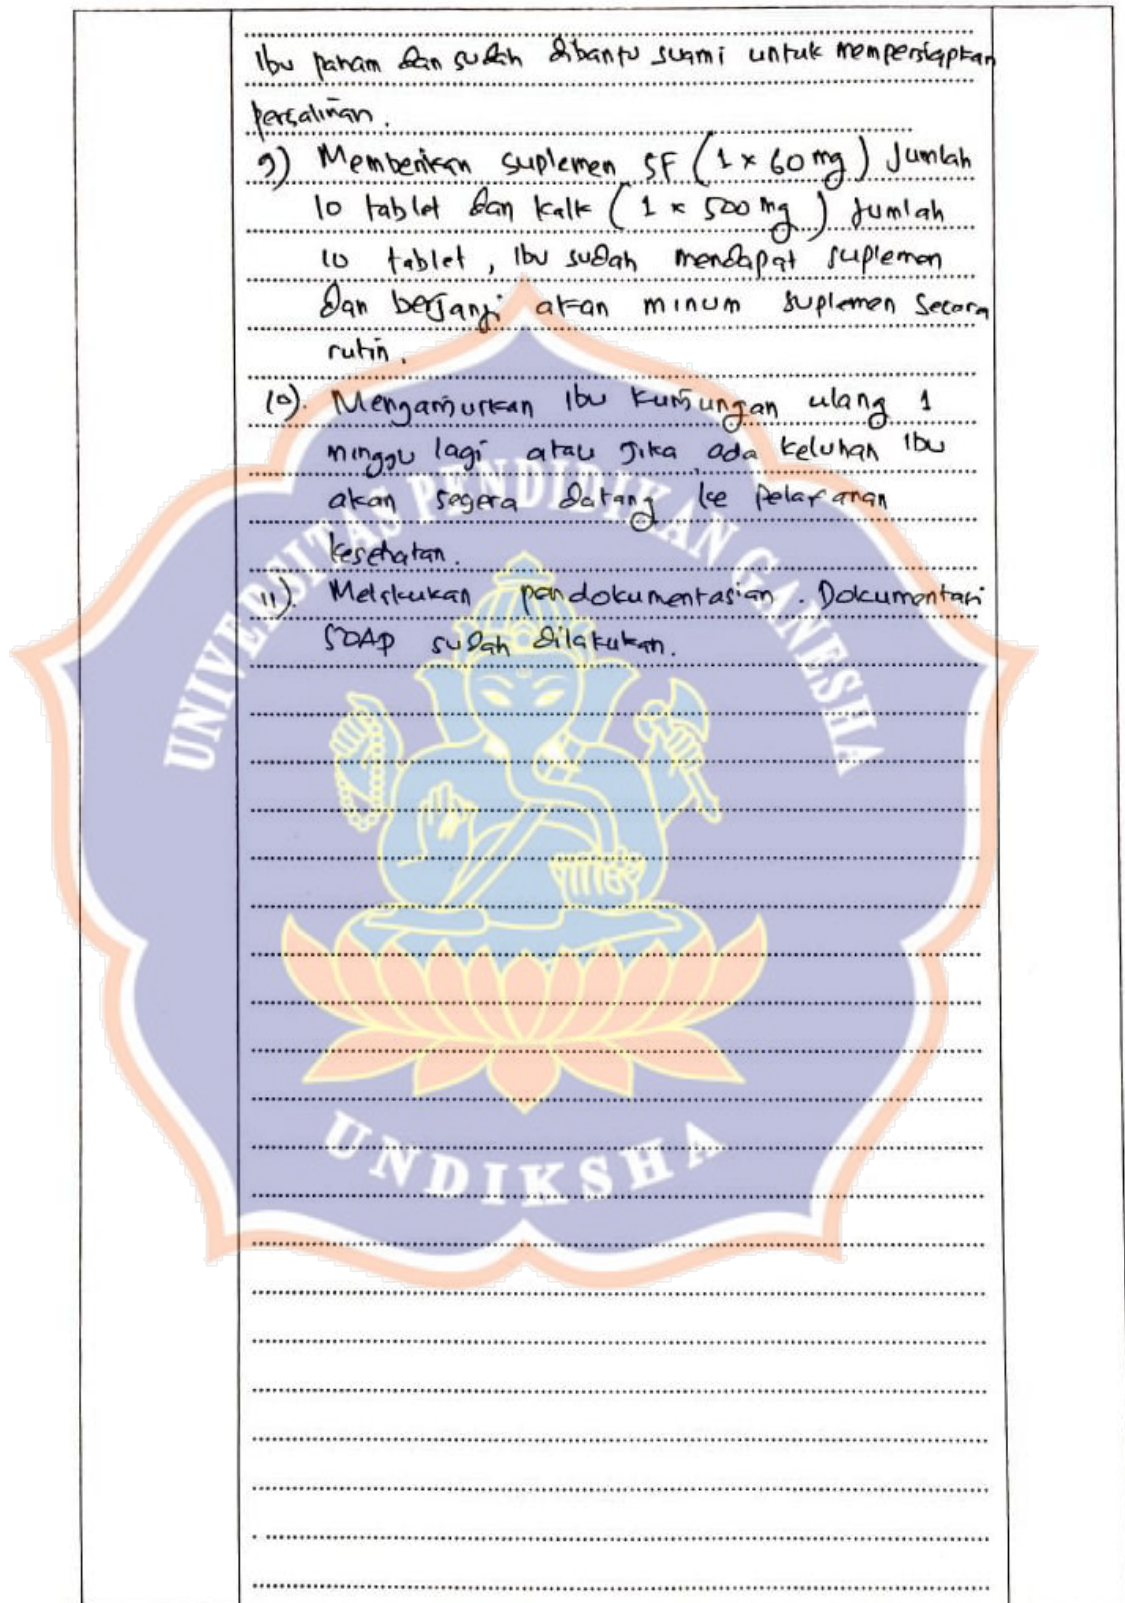 Ibu paham dan sudah dibantu suami untuk mempersiapkan
persalinan.
9) Memberikan suplemen SF (1 x 60 mg) Jumlah
10 tablet dan Kalk (1 x 500 mg) Jumlah
10 tablet, Ibu sudah mendapat suplemen
dan berjanji akan minum suplemen secara
rutin.
10). Menganjurkan Ibu Kunjungan ulang 1
minggu lagi atau Jika ada keluhan Ibu
akan segera datang ke Pelayanan
kesehatan.
11). Melakukan pendokumentasian. Dokumentasi
SOAP sudah dilakukan.
UNIVERSITAS PENDIDIKAN GANESHA
UNDIKSHA